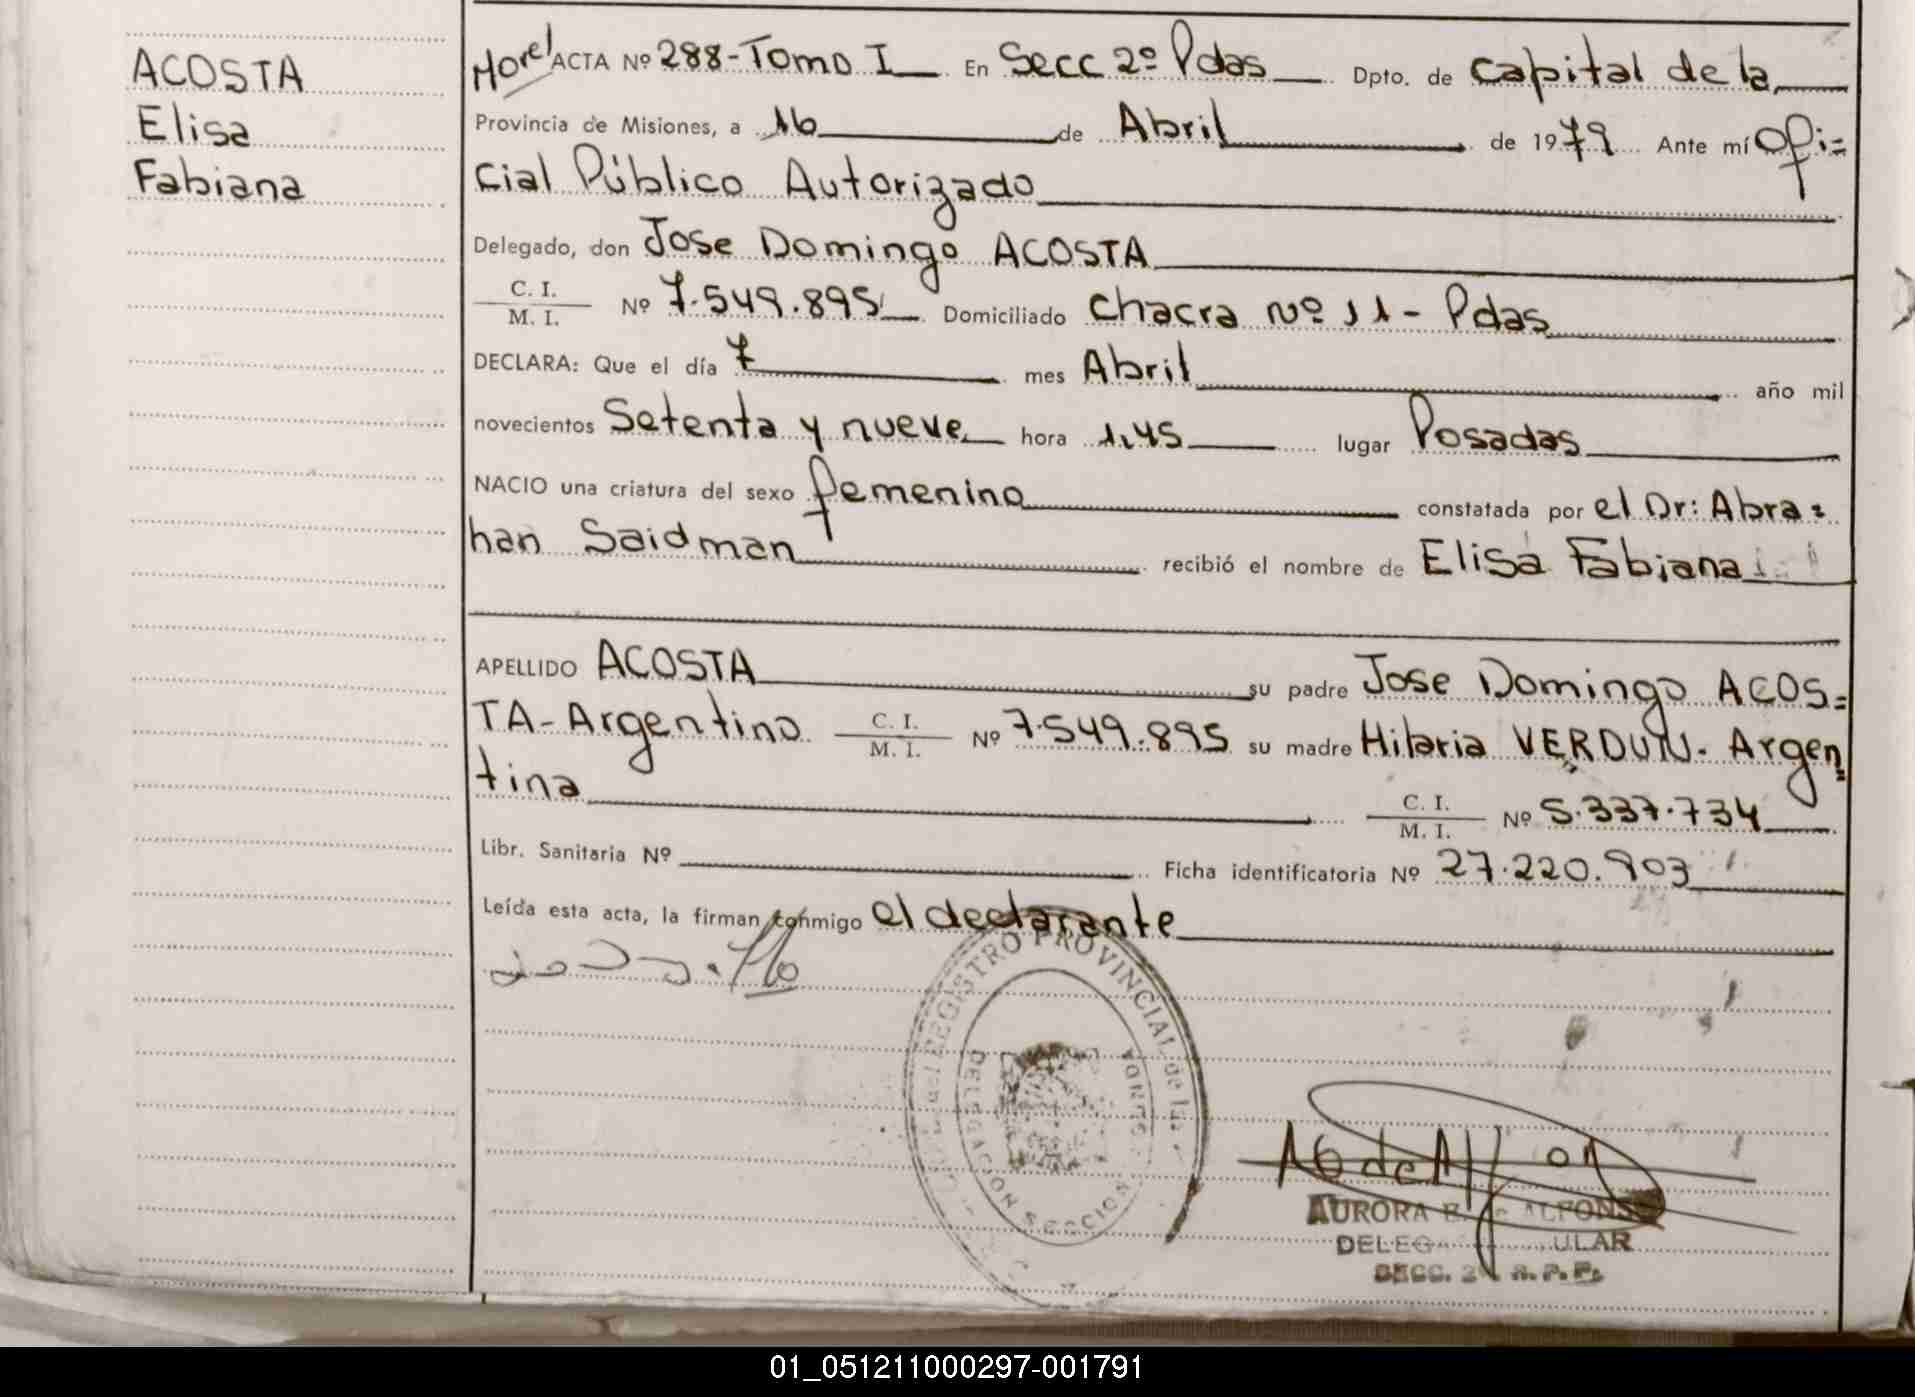 ACOSTA
Elisa
Fabiana
Morel ACTA Nº 288-Tomo I En Secc 2º Pdas Dpto. de Capital de la
Provincia de Misiones, a 16 de Abril de 1979 Ante mí Ofi=
cial Público Autorizado
Delegado, don Jose Domingo ACOSTA
C. I.
M. I. Nº 7.549.895 Domiciliado Chacra Nº 11 - Pdas
DECLARA: Que el día 7 mes Abril año mil
novecientos Setenta y nueve hora 1,45 lugar Posadas
NACIO una criatura del sexo femenino constatada por el Dr: Abra=
han Saidman recibió el nombre de Elisa Fabiana
APELLIDO ACOSTA su padre Jose Domingo ACOS=
TA-Argentino C. I. M. I. Nº 7.549.895 su madre Hilaria VERDUN. Argen=
tina C. I. M. I. Nº 5.337.734
Libr. Sanitaria Nº Ficha identificatoria Nº 27.220.903
Leída esta acta, la firman conmigo el declarante
REGISTRO PROVINCIAL de las
DELEGACION SECCION
AURORA B. de ALFONSO
SECC. 2ª R. P. P.
01_051211000297-001791